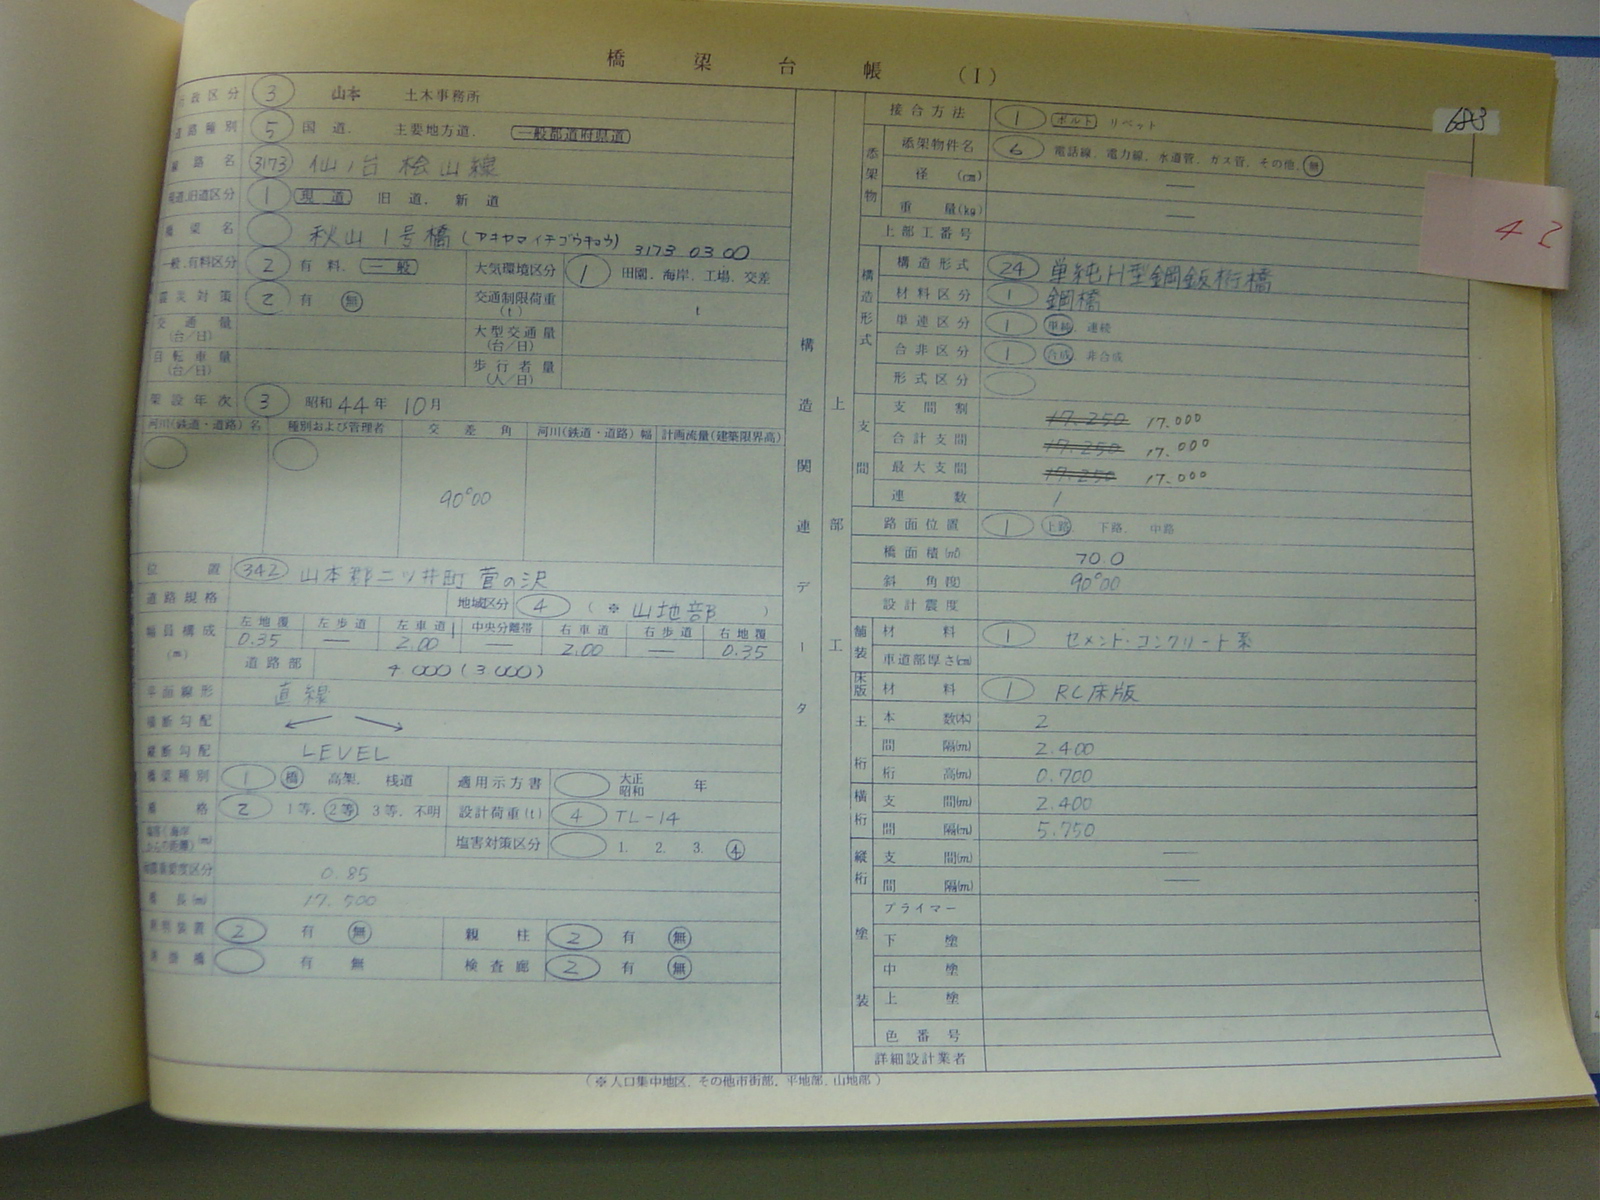 橋梁台帳 (I)
683
42
行政区分 3 山本 土木事務所
道路種別 5 国道. 主要地方道. 一般都道府県道
路線名 3173 仙ノ台桧山線
現道.旧道区分 1 現道 旧道. 新道
橋梁名 秋山1号橋 (アキヤマイチゴウキョウ) 3173 03 00
一般.有料区分 2 有料. 一般 大気環境区分 1 田園. 海岸. 工場. 交差
震災対策 2 有 無 交通制限荷重(t) t
交通量(台/日) 大型交通量(台/日)
自転車量(台/日) 歩行者量(人/日)
架設年次 3 昭和44年 10月
河川(鉄道・道路)名 種別および管理者 交差角 河川(鉄道・道路)幅 計画流量(建築限界高)
90°00
位置 342 山本郡二ツ井町 菅の沢
道路規格 地域区分 4 (※ 山地部 )
幅員構成(m) 左地覆 左歩道 左車道 中央分離帯 右車道 右歩道 右地覆
0.35 — 2.00 — 2.00 — 0.35
道路部 4 000 (3 000)
平面線形 直線
横断勾配 ← →
縦断勾配 LEVEL
橋梁種別 1 橋 高架. 桟道 適用示方書 大正 昭和 年
橋格 2 1等. 2等 3等. 不明 設計荷重(t) 4 TL-14
(m) 塩害対策区分 1. 2. 3. 4
重要度区分 0.85
橋長(m) 17.500
2 有 無 親柱 2 有 無
有 無 検査廊 2 有 無
構造関連データ
上部工
接合方法 1 ボルト リベット
添架物 添架物件名 6 電話線. 電力線. 水道管. ガス管. その他. 無
径 (cm) —
重量(kg) —
上部工番号
構造形式 構造形式 24 単純H型鋼鈑桁橋
材料区分 1 鋼橋
単連区分 1 単純 連続
合非区分 1 合成 非合成
形式区分
支間 支間割 17.250 17.000
合計支間 17.250 17.000
最大支間 17.250 17.000
連数 1
路面位置 1 上路 下路. 中路
橋面積(㎡) 70.0
斜角(度) 90°00
設計震度
舗装 材料 1 セメント・コンクリート系
車道部厚さ(cm)
床版 材料 1 RC床版
主桁 本数(本) 2
間隔(m) 2.400
桁高(m) 0.700
横桁 支間(m) 2.400
間隔(m) 5.750
縦桁 支間(m) —
間隔(m) —
塗装 プライマー
下塗
中塗
上塗
色番号
詳細設計業者
(※人口集中地区. その他市街部. 平地部. 山地部)